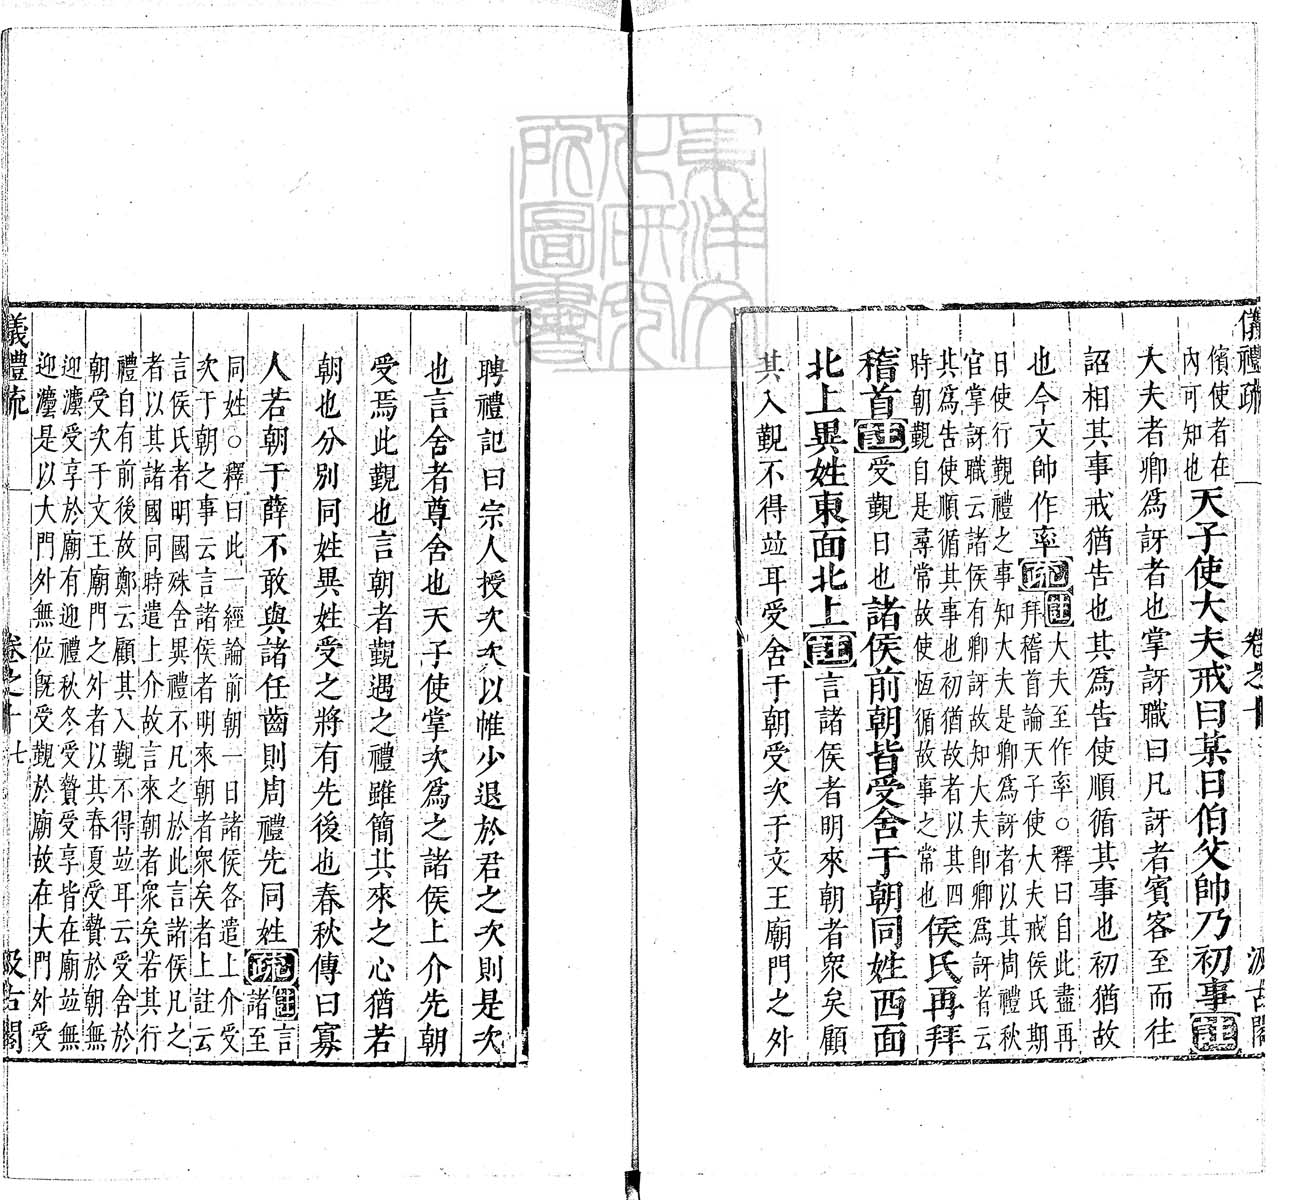 儀禮疏 卷之十 汲古閣
儐使者在
內可知也
天子使大夫戒曰某日伯父帥乃初事註
大夫者卿為訝者也掌訝職曰凡訝者賓客至而往
詔相其事戒猶告也其為告使順循其事也初猶故
也今文帥作率疏
註大夫至作率○釋曰自此盡再
拜稽首論天子使大夫戒侯氏期
日使行覲禮之事知大夫是卿為訝者以其周禮秋
官掌訝職云諸侯有卿訝故知大夫卽卿為訝者云
其為告使順循其事也初猶故者以其四
時朝覲自是尋常故使恆循故事之常也
侯氏再拜
稽首註受覲日也諸侯前朝皆受舍于朝同姓西面
北上異姓東面北上註言諸侯者明來朝者衆矣顧
其入覲不得並耳受舍于朝受次于文王廟門之外
聘禮記曰宗人授次次以帷少退於君之次則是次
也言舍者尊舍也天子使掌次為之諸侯上介先朝
受焉此覲也言朝者覲遇之禮雖簡其來之心猶若
朝也分別同姓異姓受之將有先後也春秋傳曰寡
人若朝于薛不敢與諸任齒則周禮先同姓疏
註言
諸至
同姓○釋曰此一經論前朝一日諸侯各遣上介受
次于朝之事云言諸侯者明來朝者衆矣者上註云
言侯氏者明國殊舍異禮不凡之於此言諸侯凡之
者以其諸國同時遣上介故言來朝者衆矣若其行
禮自有前後故鄭云顧其入覲不得並耳云受舍於
朝受次于文王廟門之外者以其春夏受贄於朝無
迎灋受享於廟有迎禮秋冬受贄受享皆在廟並無
迎灋是以大門外無位旣受覲於廟故在大門外受
儀禮疏 卷之十 七 汲古閣
東洋文化研究所圖書